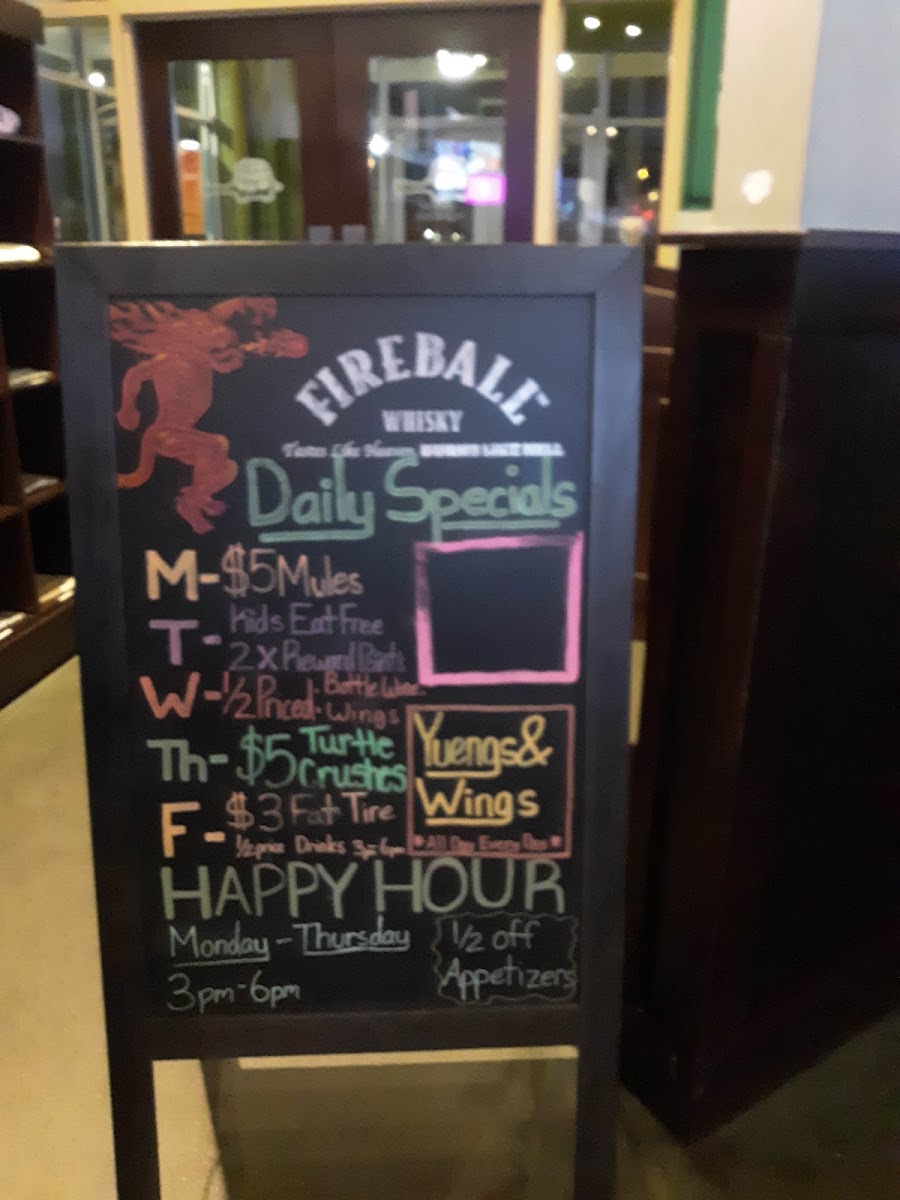 FIREBALL
WHISKY
Tastes Like Heaven, BURNS LIKE HELL
Daily Specials
M- $5 Mules
T- Kids Eat Free
2x Reward Points
W- 1/2 Priced · Bottle Wine
· Wings
Th- $5 Turtle
Crushes
F- $3 Fat Tire
1/2 price Drinks 3p-6pm
Yuengs &
Wings
All Day Every Day
HAPPY HOUR
Monday - Thursday
3pm-6pm
1/2 off
Appetizers